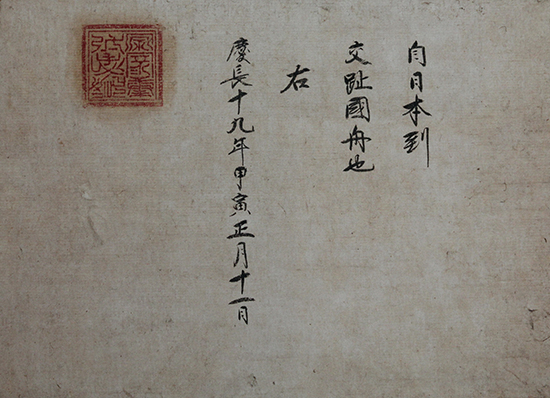 自日本到
交趾國舟也
右
慶長十九年甲寅正月十一日
源家康
弘忠恕